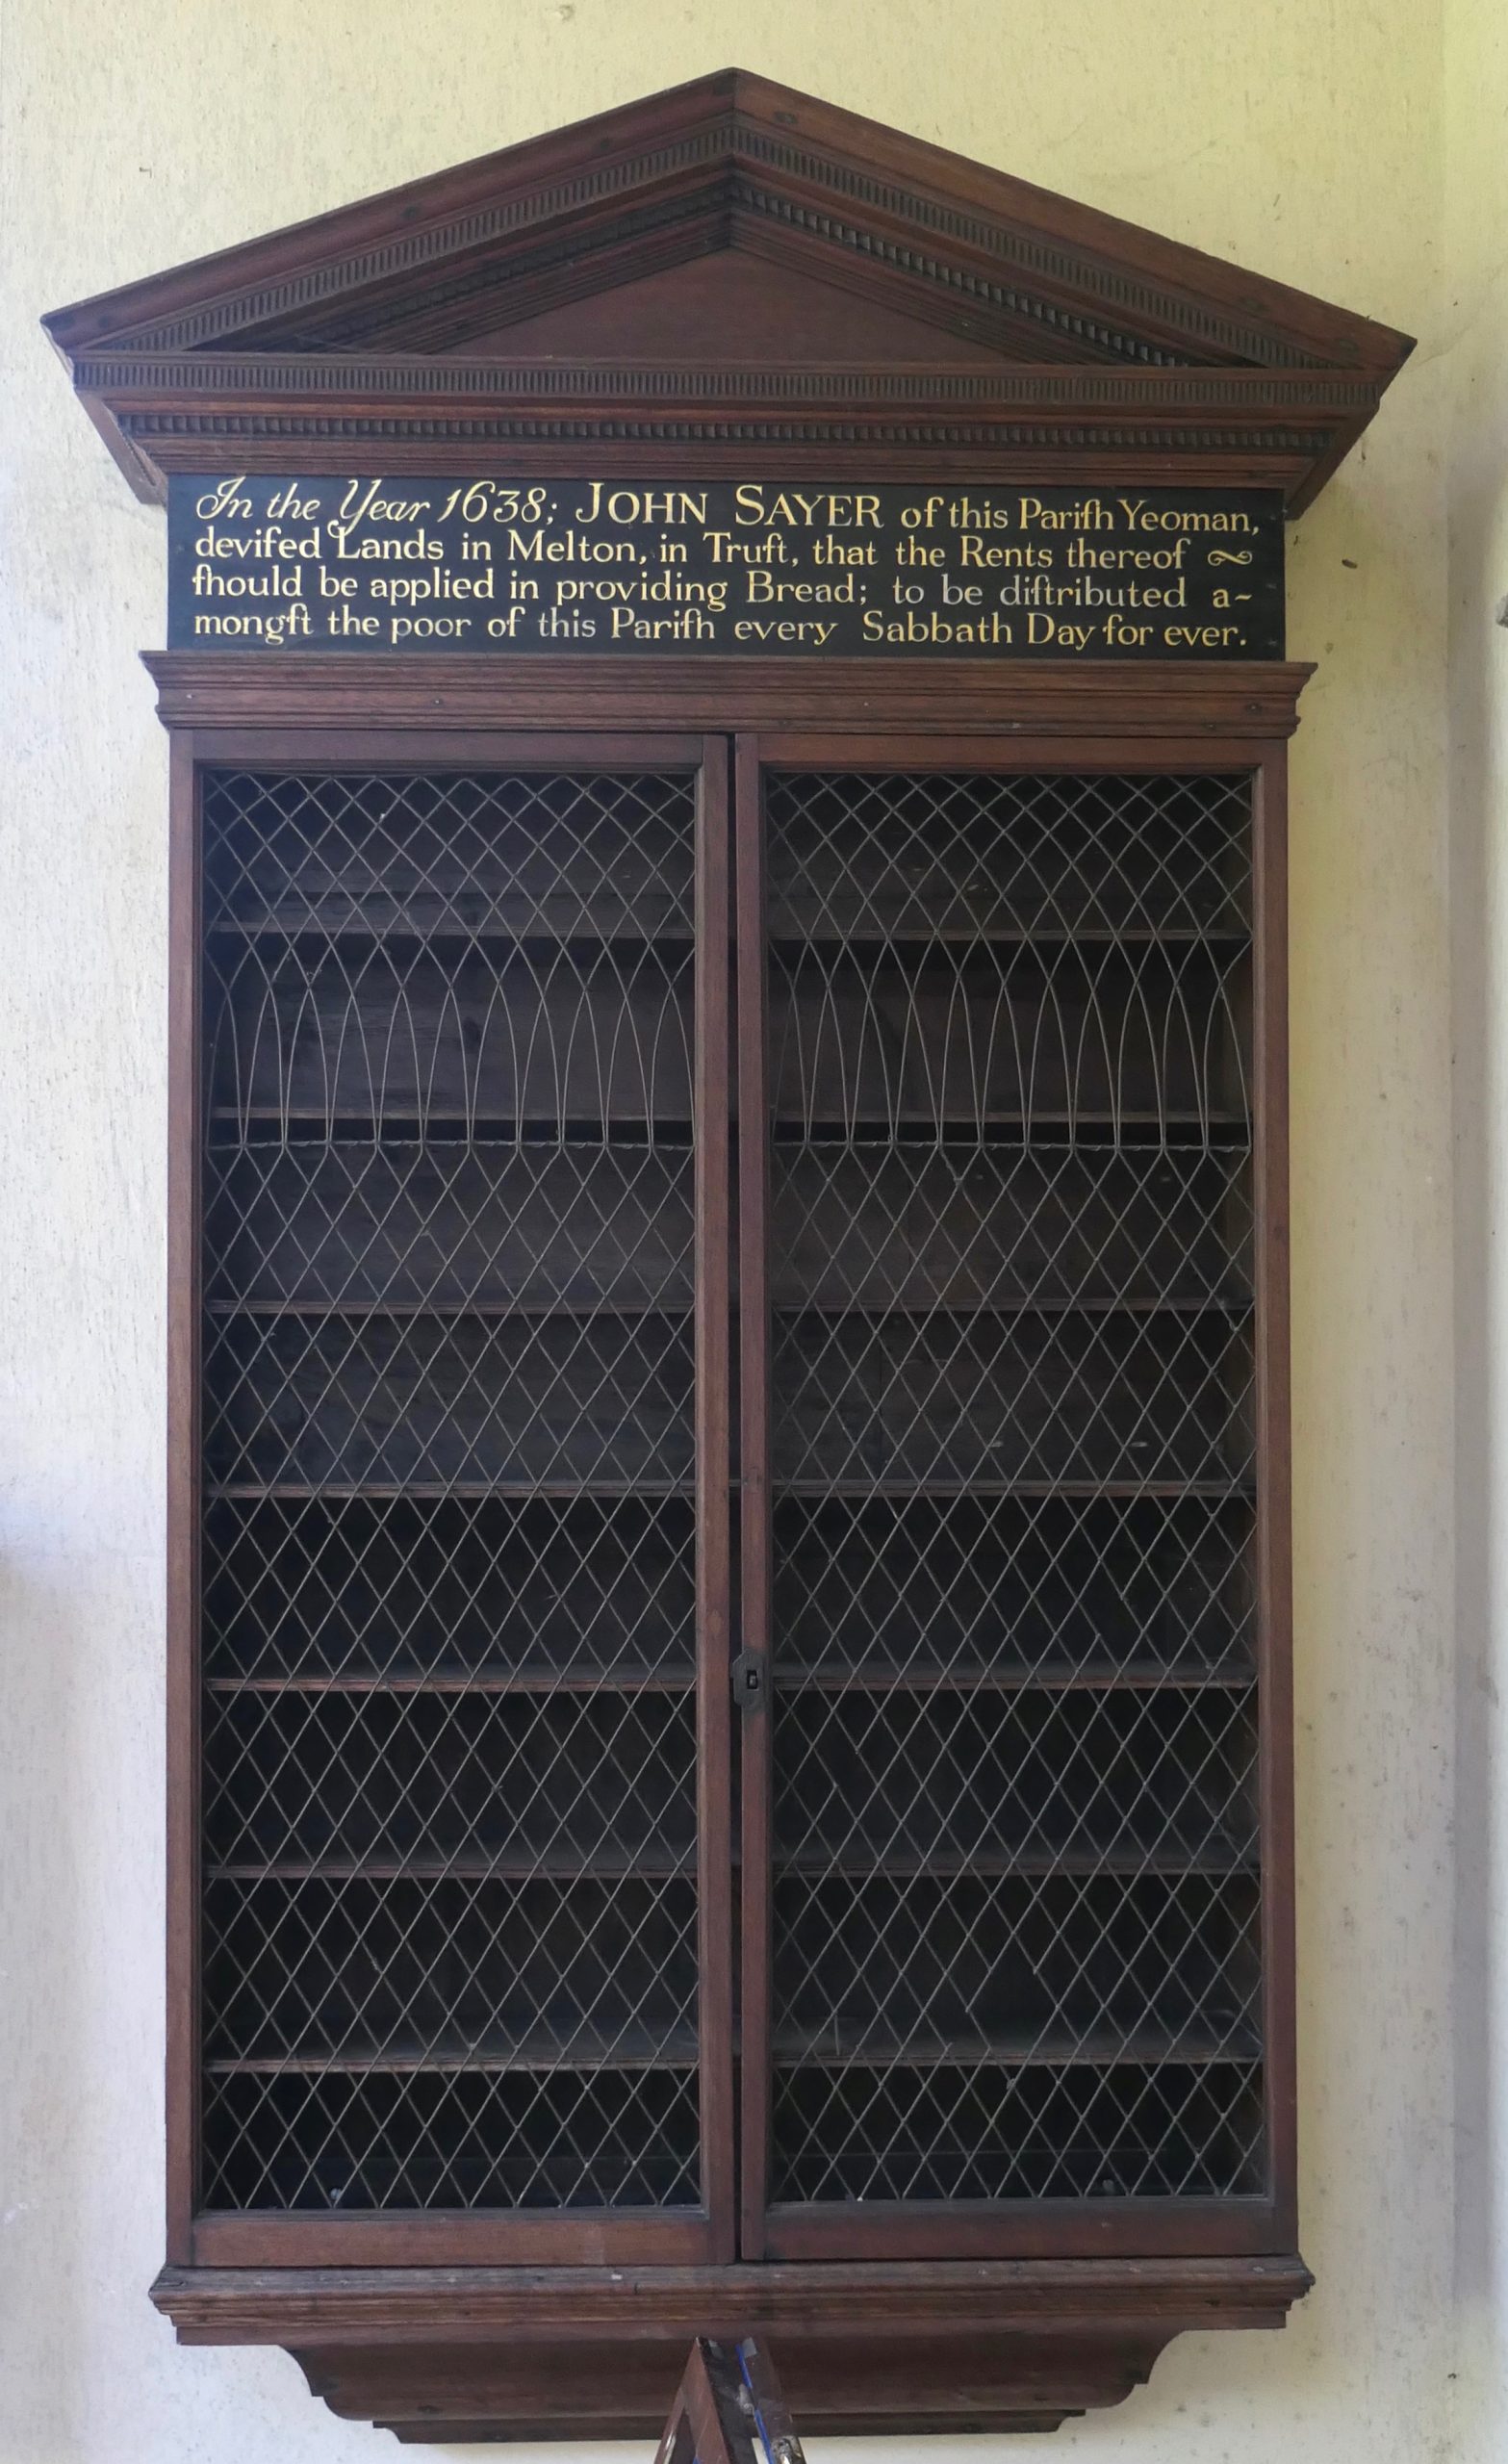 In the Year 1638; JOHN SAYER of this Pariſh Yeoman,
deviſed Lands in Melton, in Truſt, that the Rents thereof
ſhould be applied in providing Bread; to be diſtributed a-
mongſt the poor of this Pariſh every Sabbath Day for ever.